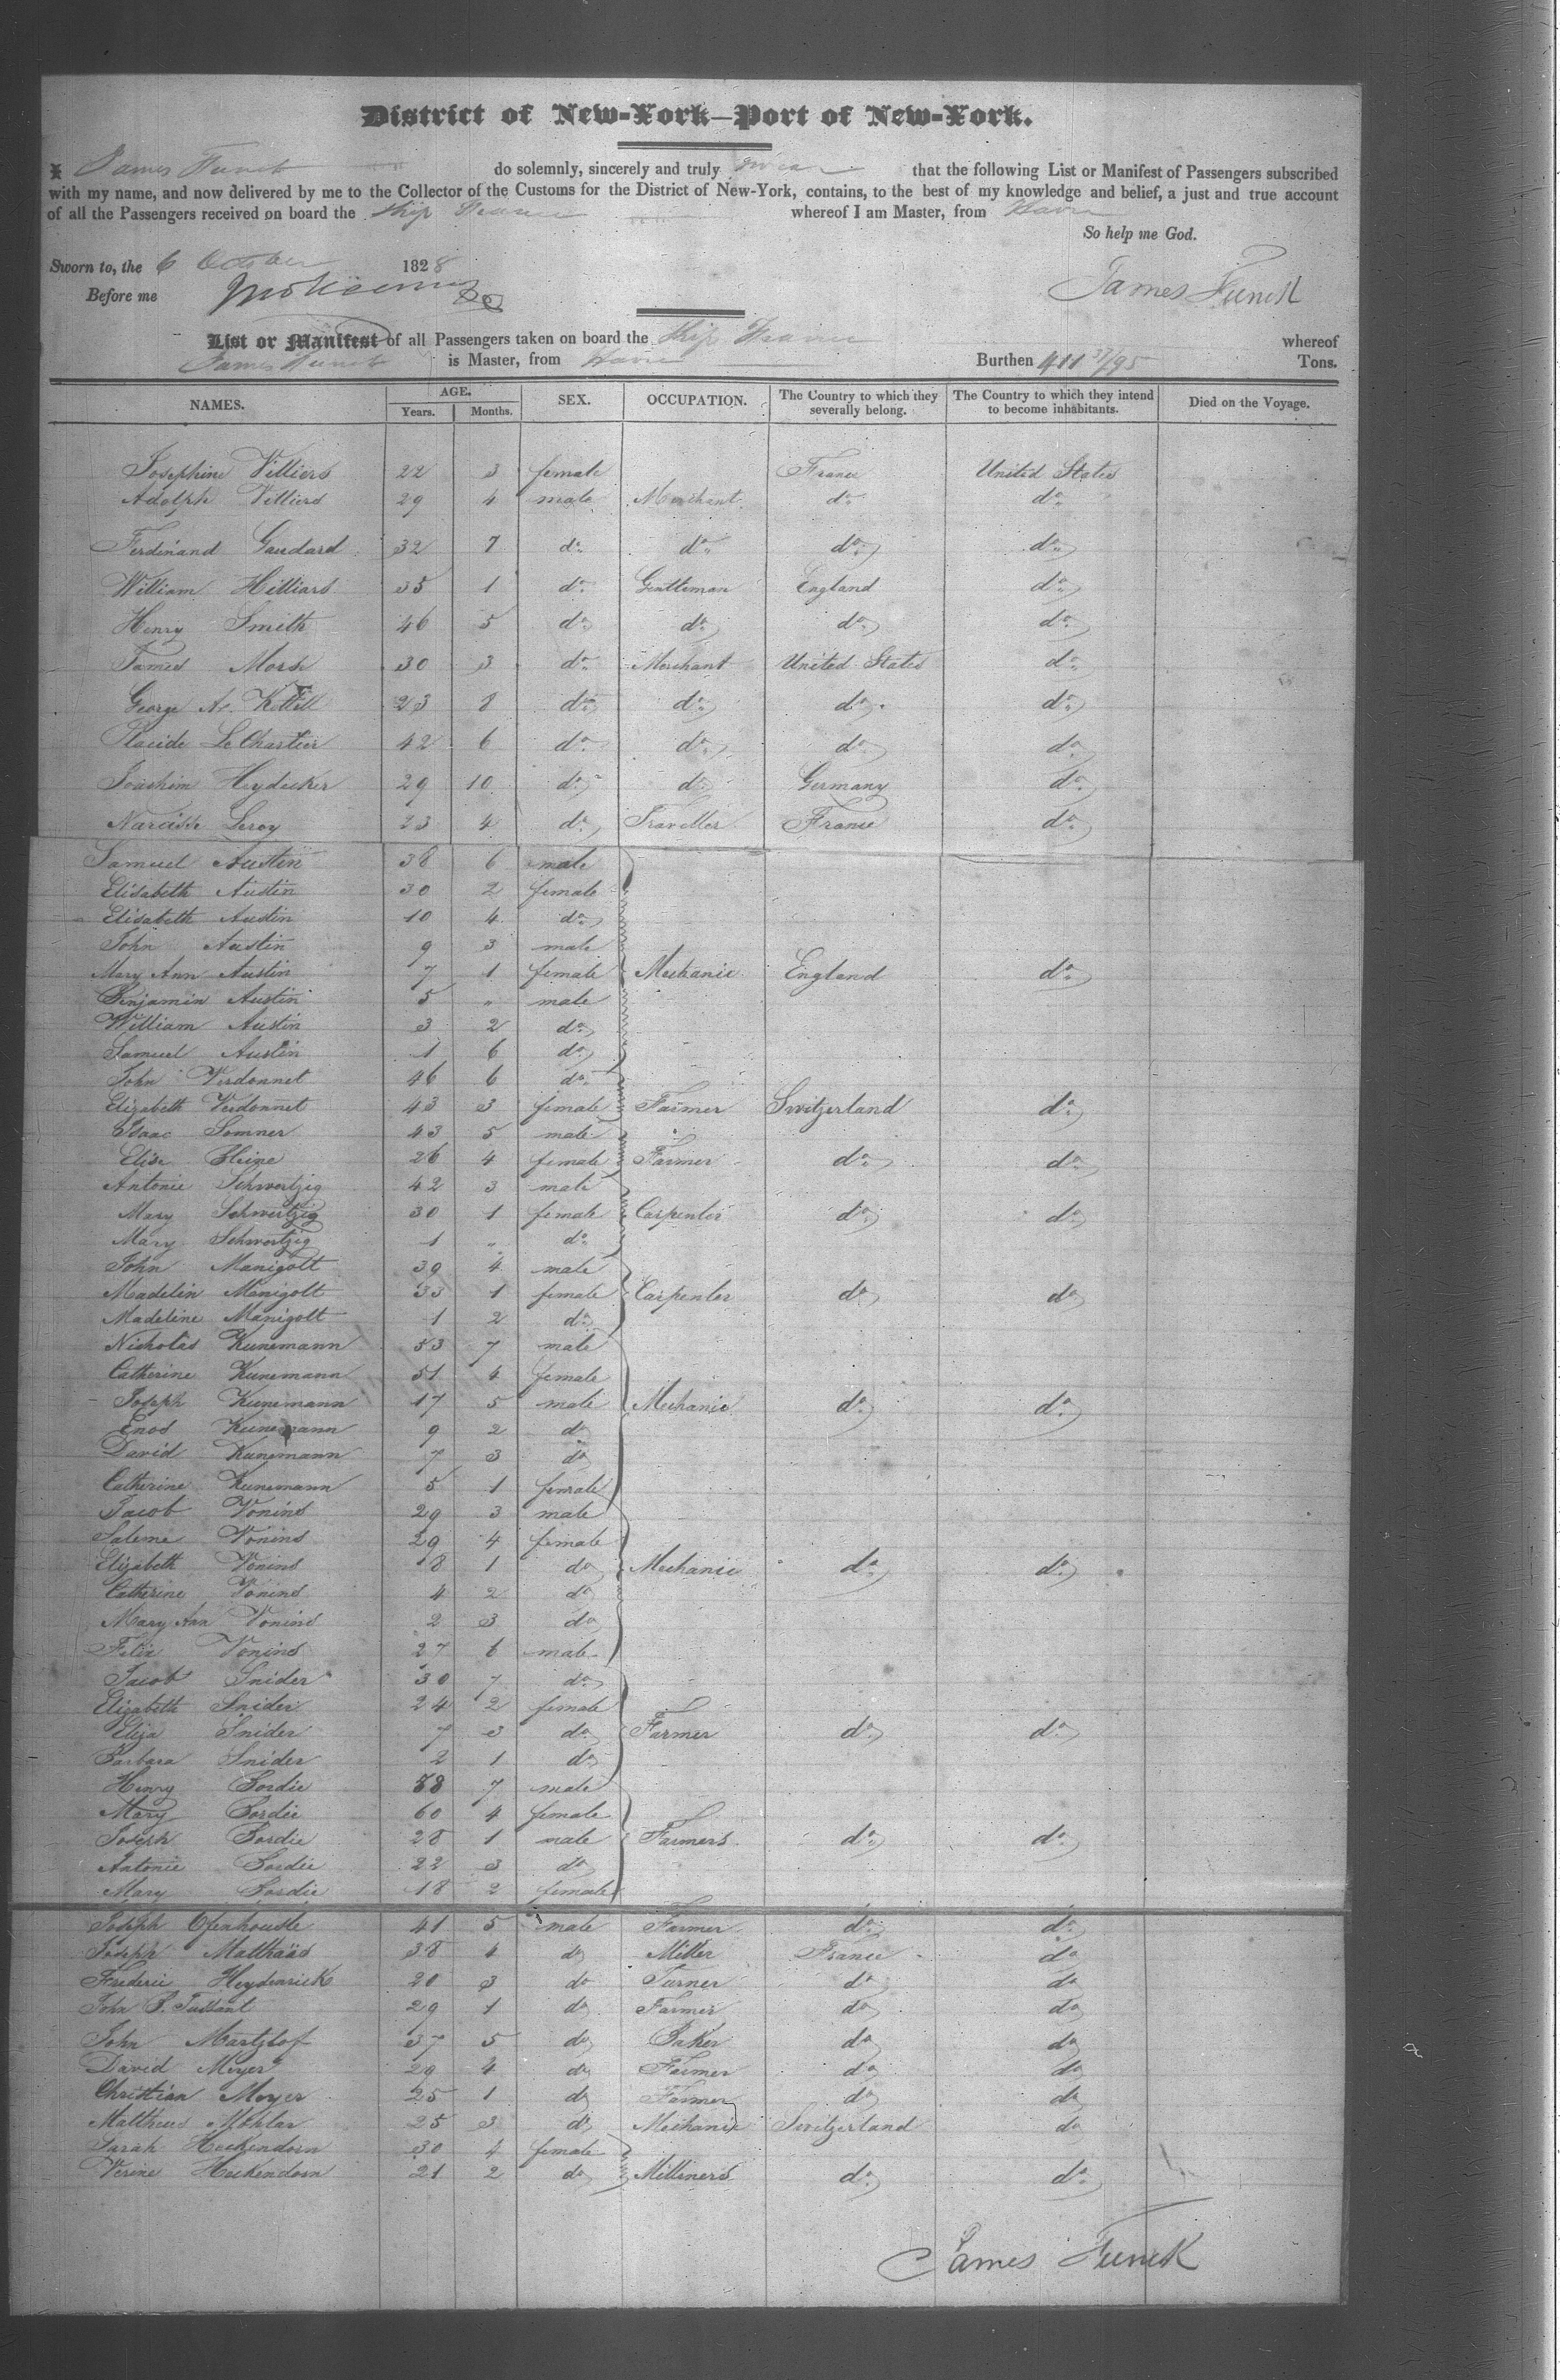 District of New-York—Port of New-York.
I James Funck do solemnly, sincerely and truly swear that the following List or Manifest of Passengers subscribed
with my name, and now delivered by me to the Collector of the Customs for the District of New-York, contains, to the best of my knowledge and belief, a just and true account
of all the Passengers received on board the Ship France whereof I am Master, from Havre
So help me God.
Sworn to, the 6 October 1828
Before me
James Funck
List or Manifest of all Passengers taken on board the Ship France whereof
James Funck is Master, from Havre Burthen 411 37/95 Tons.
NAMES. AGE. Years. Months. SEX. OCCUPATION. The Country to which they severally belong. The Country to which they intend to become inhabitants. Died on the Voyage.
Josephine Villiers 22 3 female France United States
Adolph Villiers 29 4 male Merchant do do
Ferdinand Gaudard 32 7 do do do do
William Hilliard 35 1 do Gentleman England do
Henry Smith 46 5 do do do do
James Morse 30 3 do Merchant United States do
George A. Kettell 23 8 do do do do
Placide LeChartier 42 6 do do do do
Joachim Heydecker 29 10 do do Germany do
Narcisse Leroy 23 4 do Traveller France do
Samuel Austin 38 6 male
Elisabeth Austin 30 2 female
Elisabeth Austin 10 4 do
John Austin 9 3 male
Mary Ann Austin 7 1 female Mechanic England do
Benjamin Austin 5 " male
William Austin 3 2 do
Samuel Austin 1 6 do
John Verdonnet 46 6 do
Elizabeth Verdonnet 43 3 female Farmer Switzerland do
Isaac Somner 43 5 male
Elise Heine 26 4 female Farmer do do
Antonie Schwertzig 42 3 male
Mary Schwertzig 30 1 female Carpenter do do
Mary Schwertzig 1 " do
John Manigolt 39 4 male
Madelin Manigolt 33 1 female Carpenter do do
Madeline Manigolt 1 2 do
Nicholas Kunemann 53 7 male
Catherine Kunemann 51 4 female
Joseph Kunemann 17 5 male Mechanic do do
Enos Kunemann 9 2 do
David Kunemann 7 3 do
Catherine Kunemann 5 1 female
Jacob Vonins 29 3 male
Saleme Vonins 29 4 female
Elizabeth Vonins 8 1 do Mechanic do do
Catherine Vonins 4 2 do
Mary Ann Vonins 2 3 do
Felix Vonins 27 6 male
Jacob Snider 30 7 do
Elizabeth Snider 24 2 female
Eliza Snider 7 3 do Farmer do do
Barbara Snider 2 1 do
Henry Bordie 58 7 male
Mary Bordie 60 4 female
Joseph Bordie 28 1 male Farmers do do
Antonie Bordie 22 3 do
Mary Bordie 18 2 female
Joseph Ofenhousle 41 5 male Farmer do do
Joseph Matthäas 38 4 do Miller France do
Frederic Heydenrick 20 3 do Turner do do
John B. Tussant 29 1 do Farmer do do
John Martzlof 37 5 do Baker do do
David Meyer 29 4 do Farmer do do
Christian Meyer 25 1 do Farmer do do
Mattheus Mohlar 25 3 do Mechanic Switzerland do
Sarah Heckendorn 30 4 female
Verine Heckendorn 21 2 do Milliners do do
James Funck